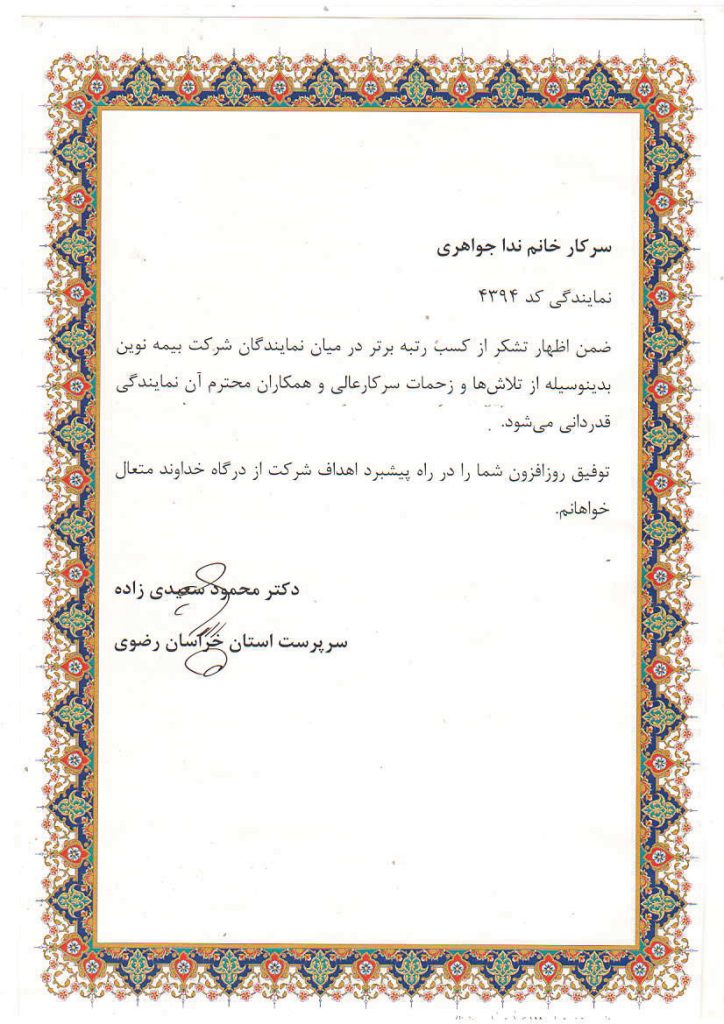 سرکار خانم ندا جواهری
نمایندگی کد ۴۳۹۴
ضمن اظهار تشکر از کسب رتبه برتر در میان نمایندگان شرکت بیمه نوین
بدینوسیله از تلاش‌ها و زحمات سرکارعالی و همکاران محترم آن نمایندگی
قدردانی می‌شود.
توفیق روزافزون شما را در راه پیشبرد اهداف شرکت از درگاه خداوند متعال
خواهانم.
دکتر محمود سعیدی زاده
سرپرست استان خراسان رضوی